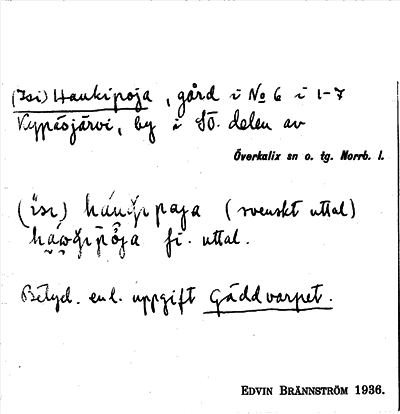 (Isi) Haukipoja, gård i No 6 i 1-7
Kypäsjärvi, by i SÖ. delen av
Överkalix sn o. tg. Norrb. l.
(svenskt uttal)
fi. uttal.
Betyd. enl. uppgift Gäddvarpet.
EDVIN BRÄNNSTRÖM 1936.